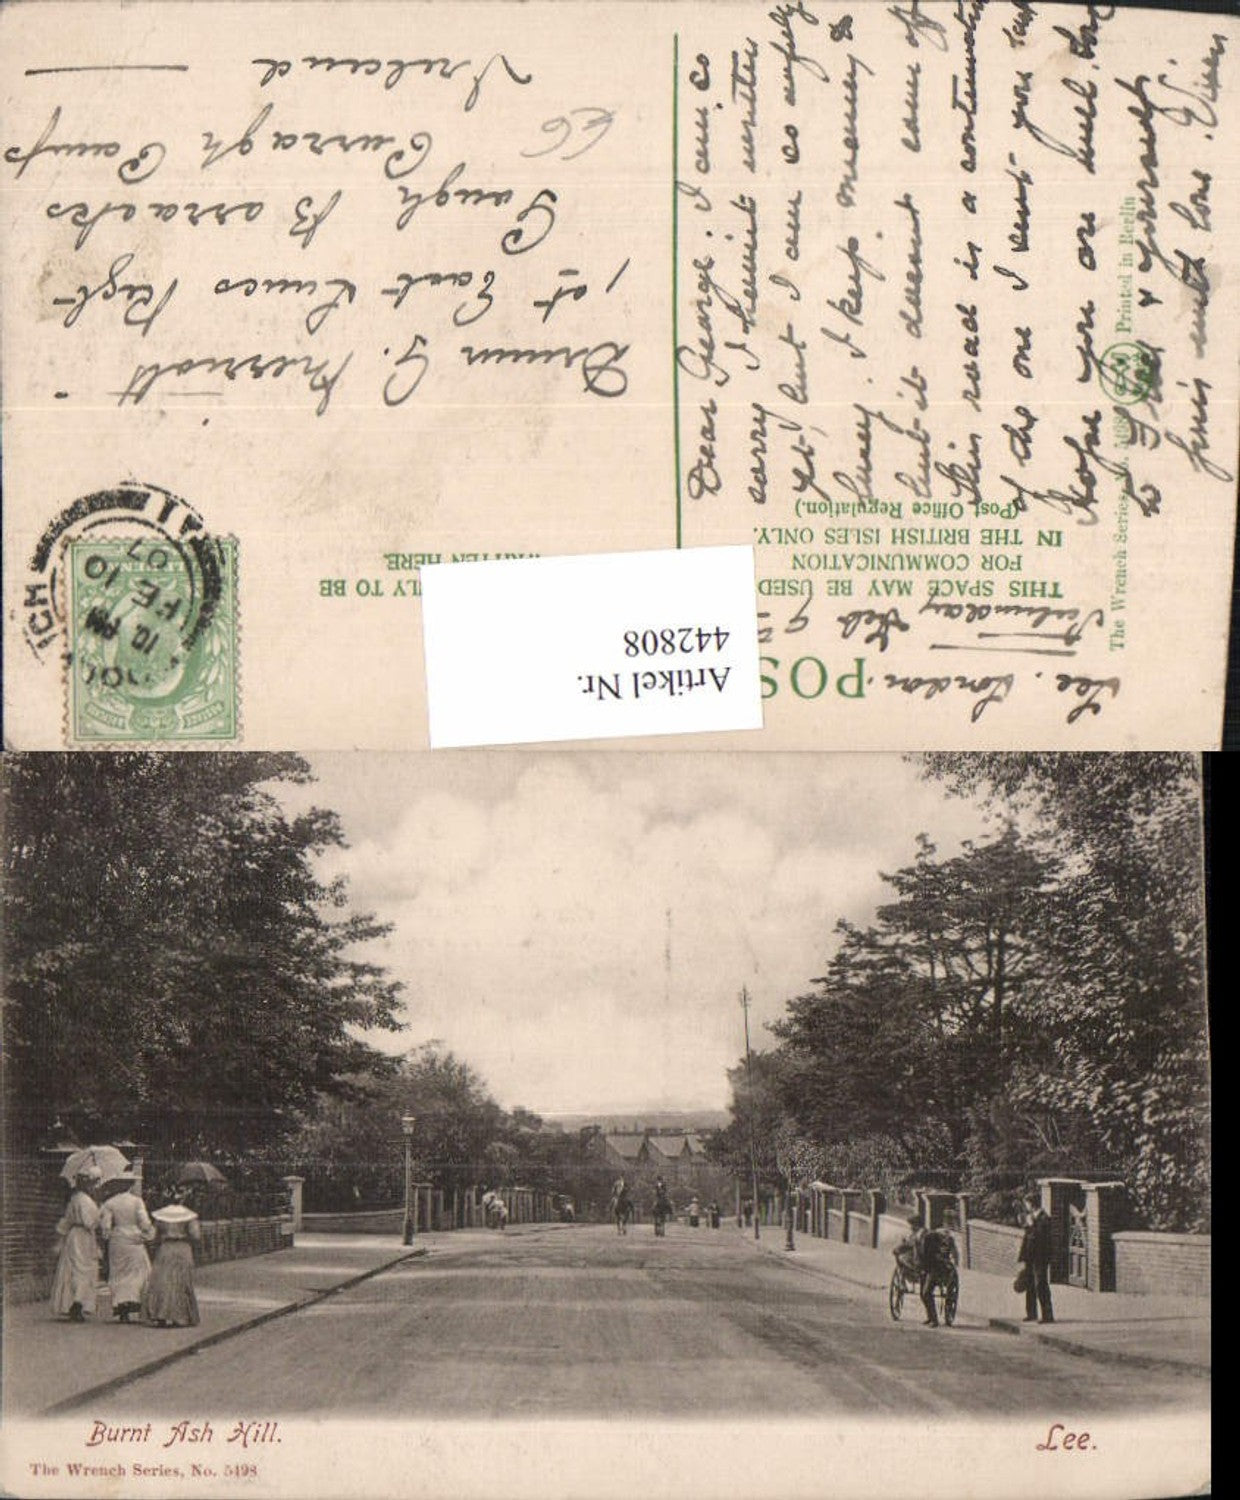 Lee. London.
Saturday Feb 9
POS
THIS SPACE MAY BE USED
FOR COMMUNICATION
IN THE BRITISH ISLES ONLY.
(Post Office Regulation.)
LY TO BE
WRITTEN HERE.
Artikel Nr.
442808
10. PM
FE 10
07
Drumr G. Merriott
1st East Lancs Regt
Gough Barracks
Curragh Camp
Ireland
Dear George. I am so
sorry I havnt written
yet, but I am so awfully
busy. I keep meaning to
but it doesnt come off
this road is a continuation
of the one I sent you last
Hope you are well, love
to & yourself
with love.
The Wrench Series, No. Printed in Berlin
Burnt Ash Hill.
Lee.
The Wrench Series, No. 5498